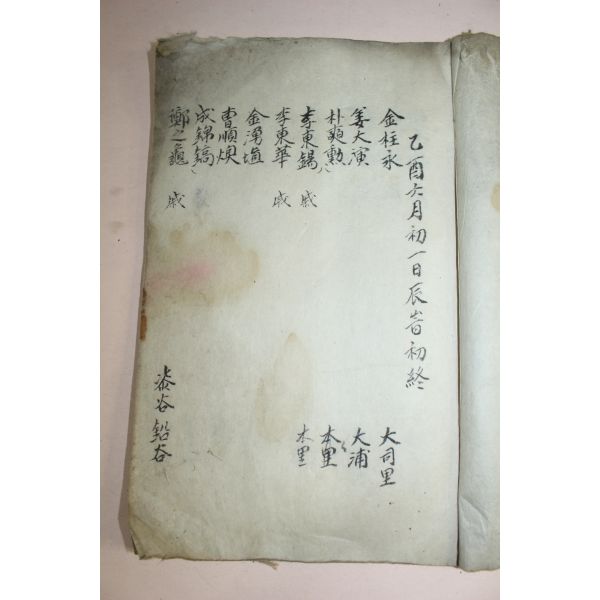 乙酉六月初一日辰時初終
金柱永 大司里
姜大演 大浦
朴勳 本里
李東錫 戚 本里
李東華 戚
金湧
曺順煥
成錦鎬
鄭之 戚
谷 鉛谷